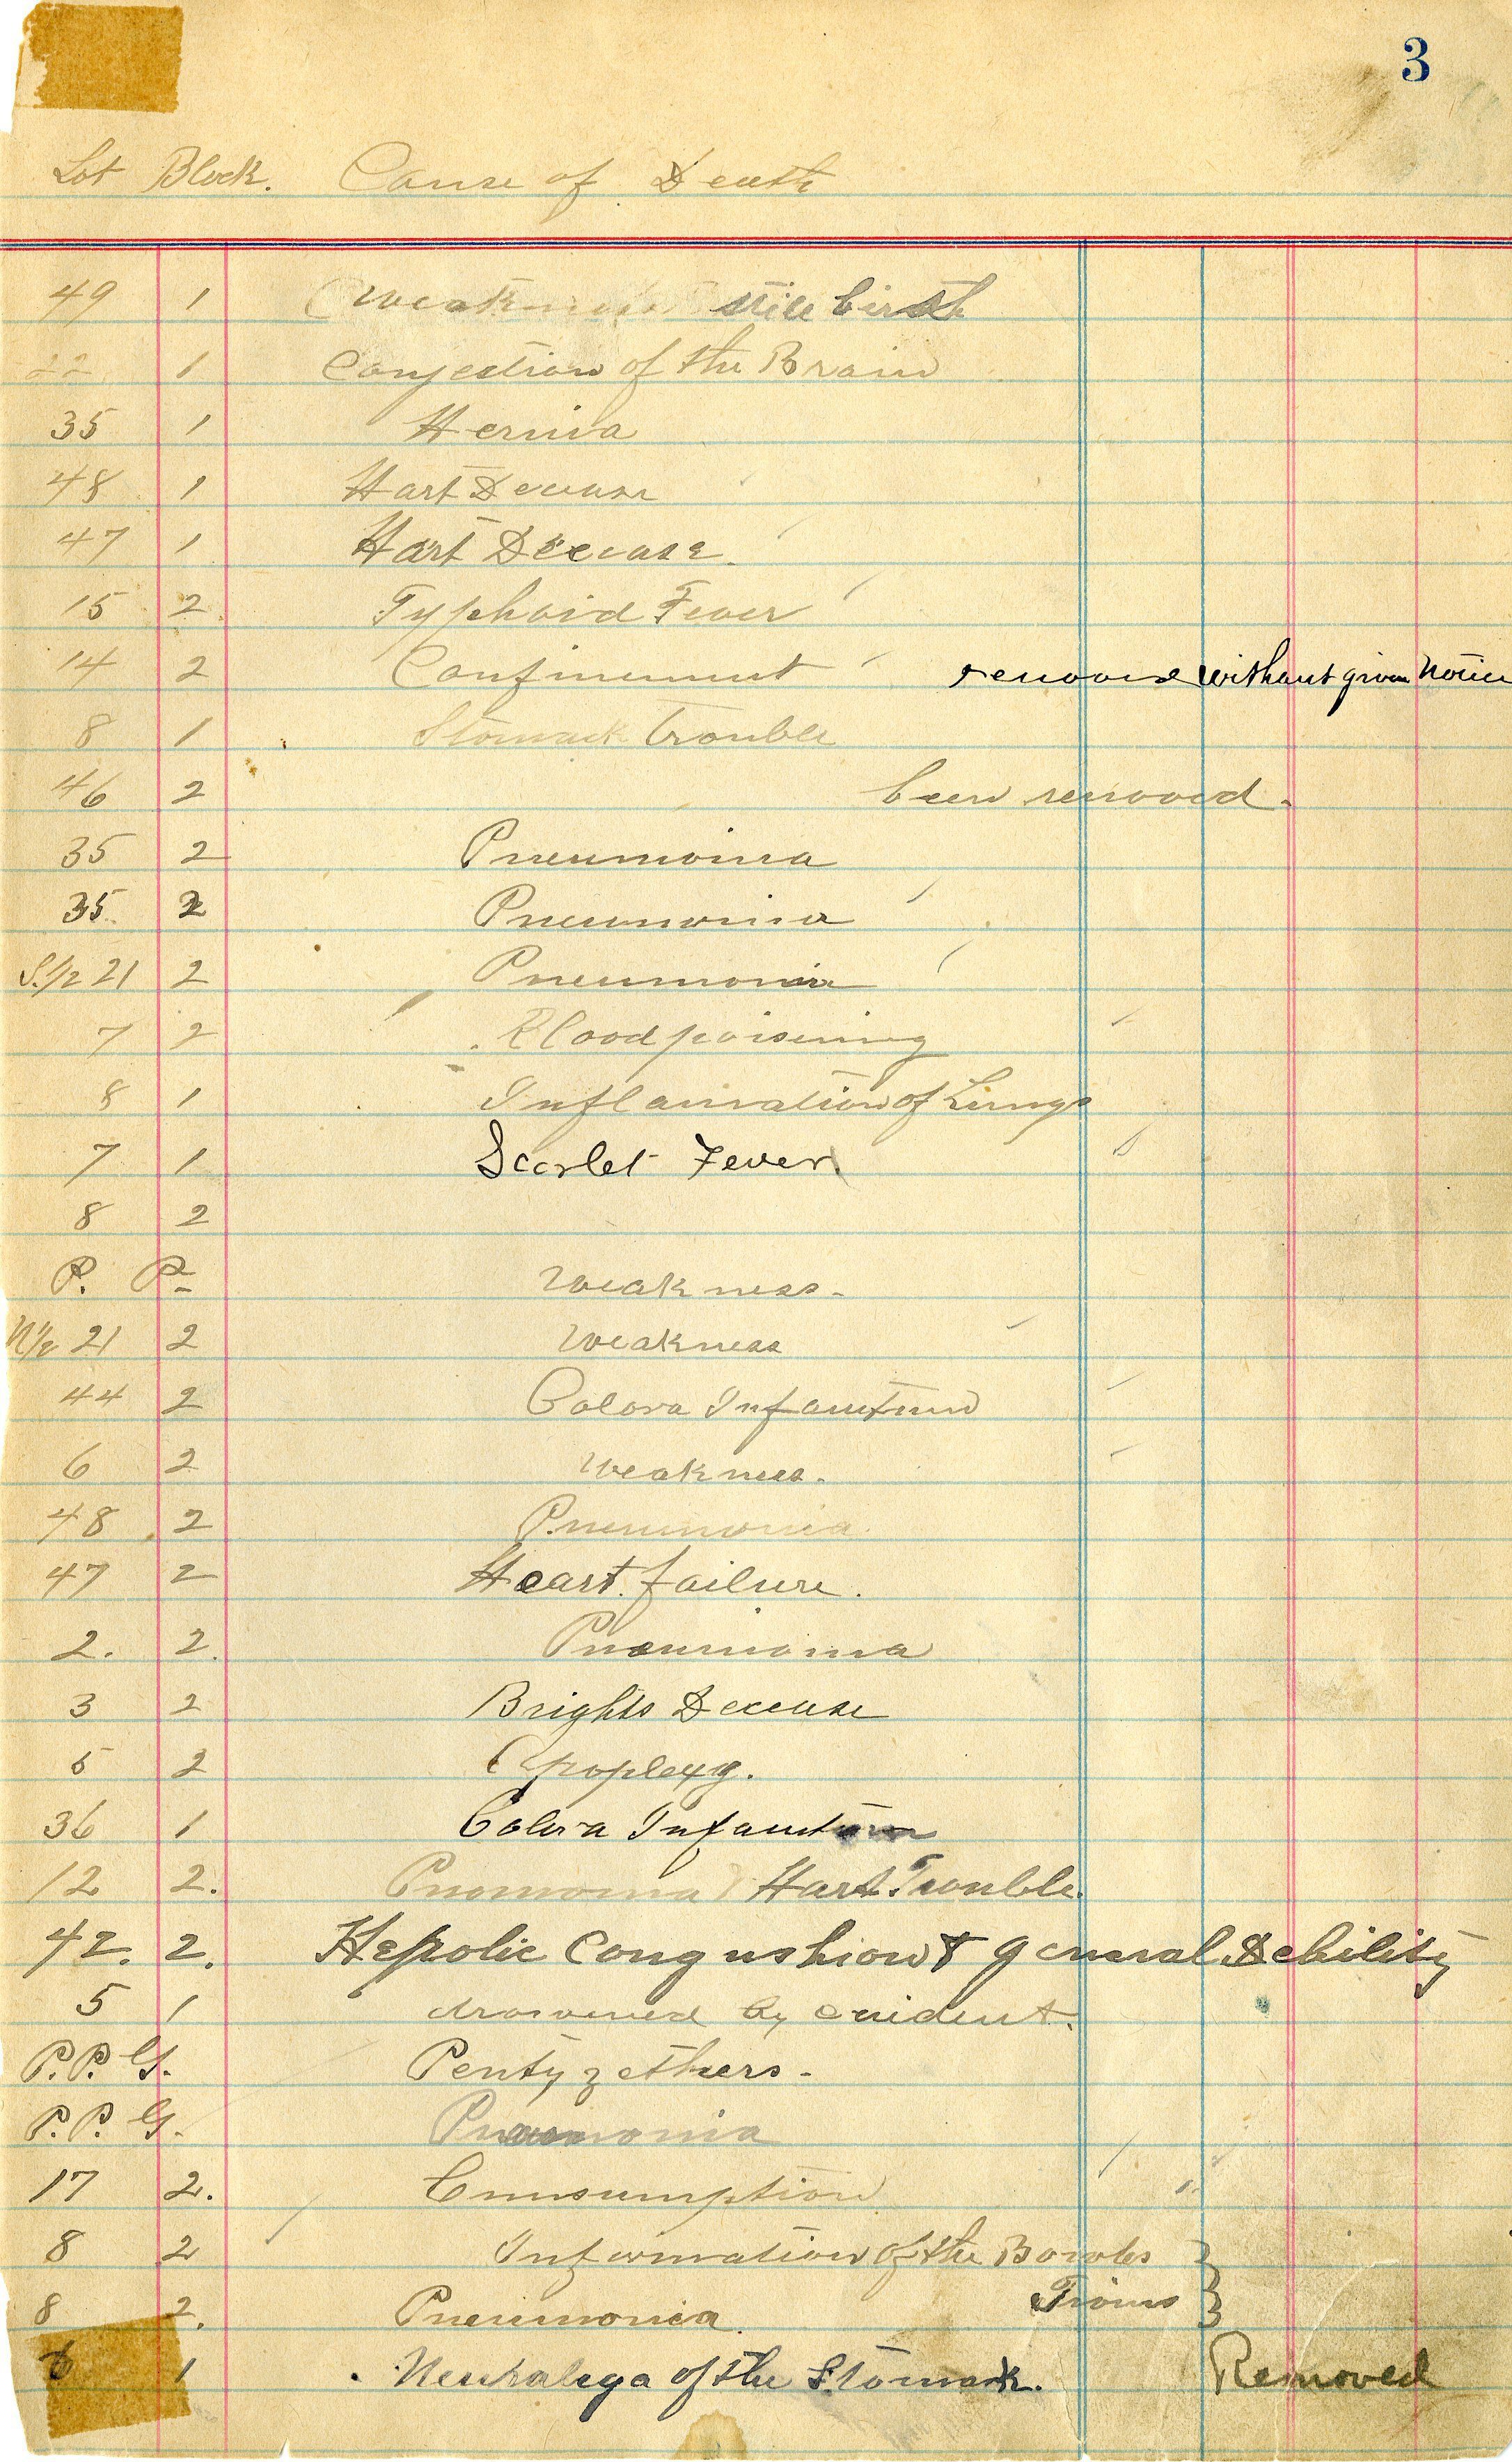 3
Lot Block. Cause of Death
49 1 Weakness still birth
22 1 Conjection of the Brain
35 1 Hernia
48 1 Hart Decease
47 1 Hart Decease.
15 2 Typhoid Fever
14 2 Confinement removed without given notice
8 1 Stomack trouble
46 2 been removed.
35 2 Pneumonia
35 2 Pneumonia
S.1/2 21 2 Pneumonia
7 2 Bloodpoisening
8 1 Inflamation of Lungs
7 1 Scarlet Fever
8 2
P. P. Weakness.
N1/2 21 2 Weakness
44 2 Colora Infantum
6 2 Weakness.
48 2 Pneumonia.
47 2 Heart failure.
2. 2. Pneumonia
3 2 Brights Decease
5 2 Apoplexy.
36 1 Colora Infantum
12 2. Pnomonia Hart Trouble.
42. 2. Hepolic Congushion & general Debility
5 1 drowned by accident.
P.P. G. Pentyzethers.
P.P. G. Pneumonia
17 2. Consumption
8 2 Information of the Bowles
8 2. Pneumonia Twins
6 1 Neuralega of the Stomack. Removed